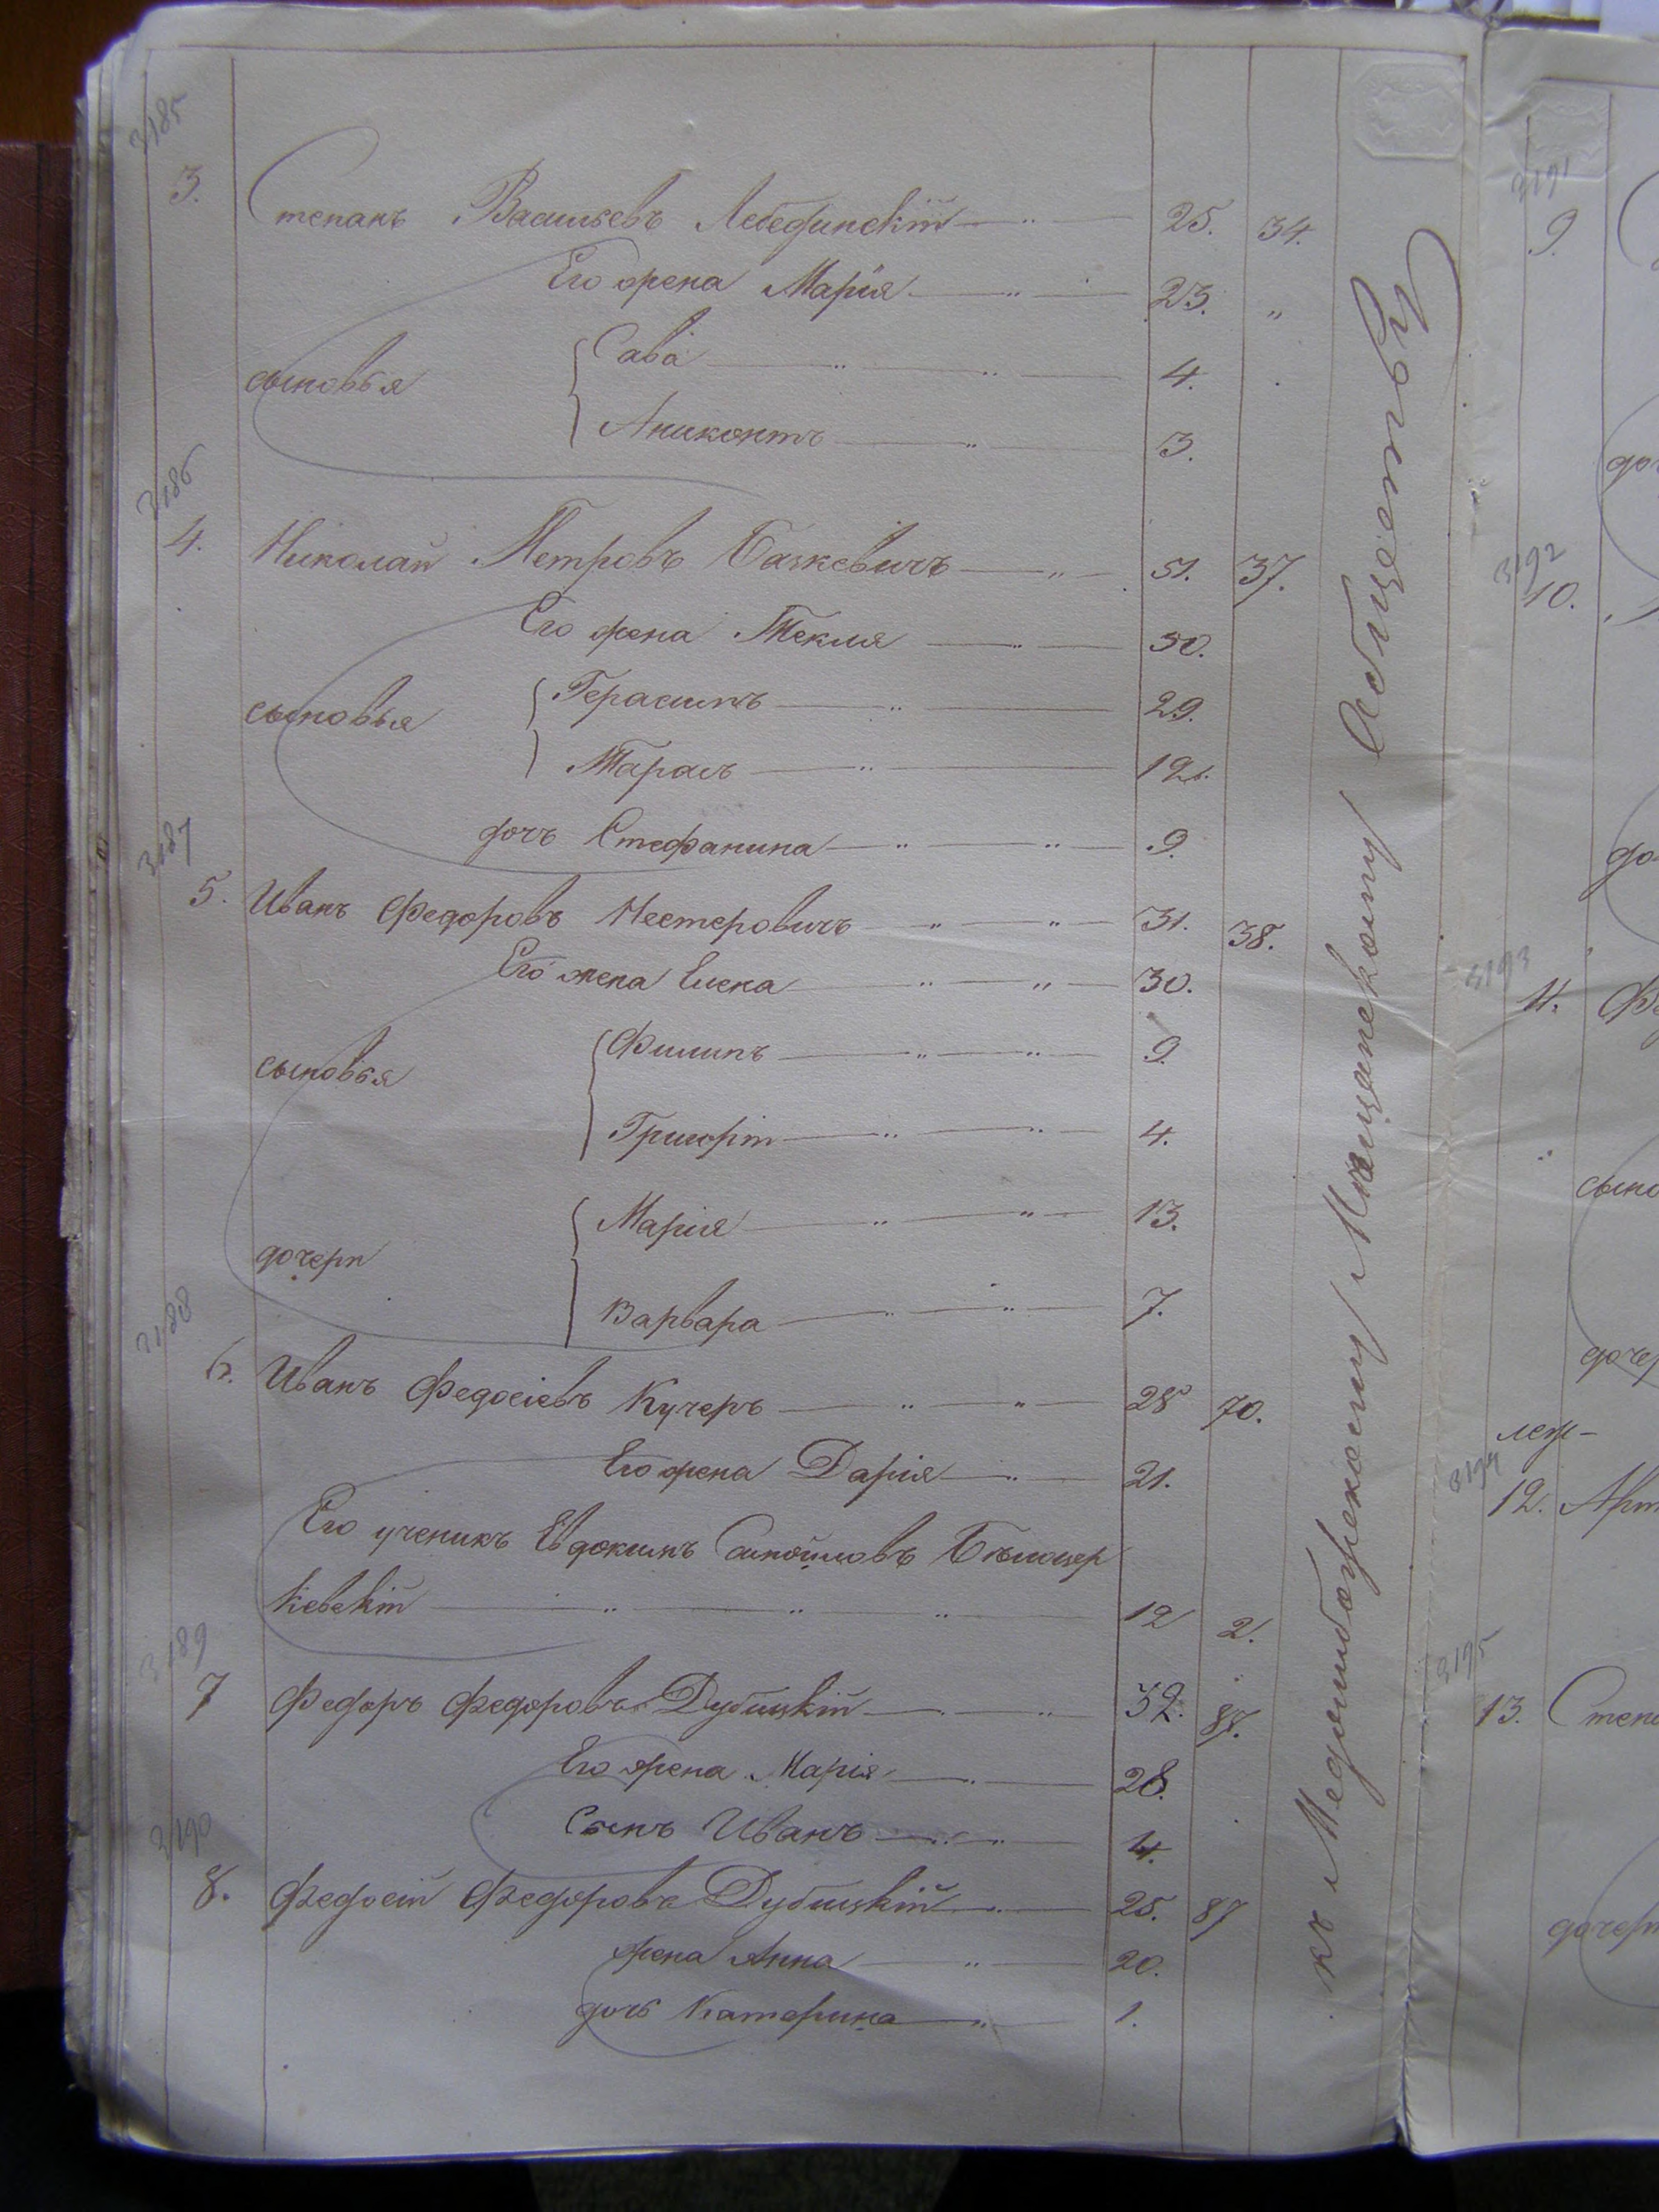 3185
3. Степанъ Васильевъ Лебединскій 25. 34.
Его жена Марія 23. "
сыновья
Сава 4.
Аниконтъ 3.
3186
4. Николай Петровъ Бачкевичъ 51. 37.
Его жена Текля 50.
сыновья
Герасимъ 29.
Тарасъ 12.
дочь Стефанина 9.
3187
5. Иванъ Федоровъ Нестеровичъ 31. 38.
Его жена Елена 30.
сыновья
Филипъ 9.
Григорій 4.
дочери
Марія 13.
Варвара 7.
3188
6. Иванъ Федосіевъ Кучеръ 28 70.
Его жена Дарія 21.
Его ученикъ Евдокимъ Самойловъ Бѣлоцер
кевскій 12 2.
3189
7 Федоръ Федоровъ Дубицкій 32. 87.
Его жена Марія 28.
Сынъ Иванъ 4.
3190
8. Федосій Федоровъ Дубицкій 25. 87
жена Анна 20.
дочь Катерина 1.
къ Меджибожскому Мѣщанскому Обществу
3191
9.
доч
3192
10.
до
3193
11. Фе
сыно
дочер
3194
12. Арт
3195
13. Степа
дочери